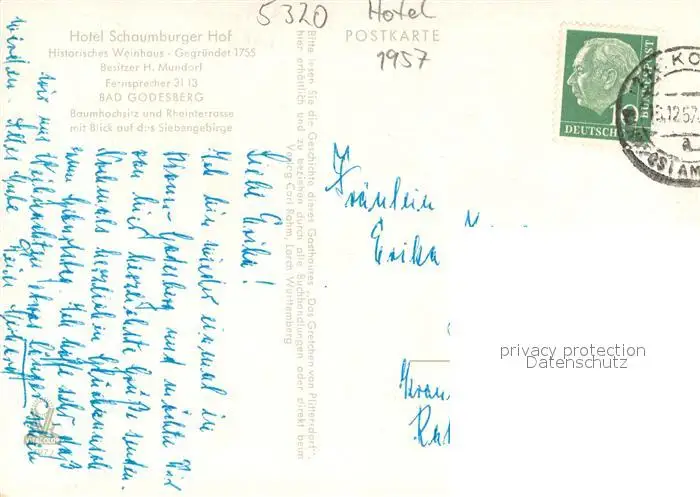 5320 Hotel
1957
Hotel Schaumburger Hof
Historisches Weinhaus - Gegründet 1755
Besitzer H. Mundorf
Fernsprecher 3113
BAD GODESBERG
Baumhochsitz und Rheinterrasse
mit Blick auf das Siebengebirge
POSTKARTE
Bitte lesen Sie die Geschichte dieses Gasthauses „Das Gretchen von Plittersdorf“,
hier erhältlich und zu beziehen durch alle Buchhandlungen oder direkt beim
Verlag Carl Rahm, Lorch Württemberg
Liebe Erika!
Ich bin wieder einmal in
Bonn-Godesberg und möchte Dir
von hier herzlichste Grüße senden.
Nochmals herzlichen Glückwunsch
zum Geburtstag. Ich hoffe sehr, daß
wir uns Weihnachten etwas länger sehen
werden. Alles Gute Dein
Fräulein
Erika
10
DEUTSCHE
BUNDESPOST
privacy protection
Datenschutz